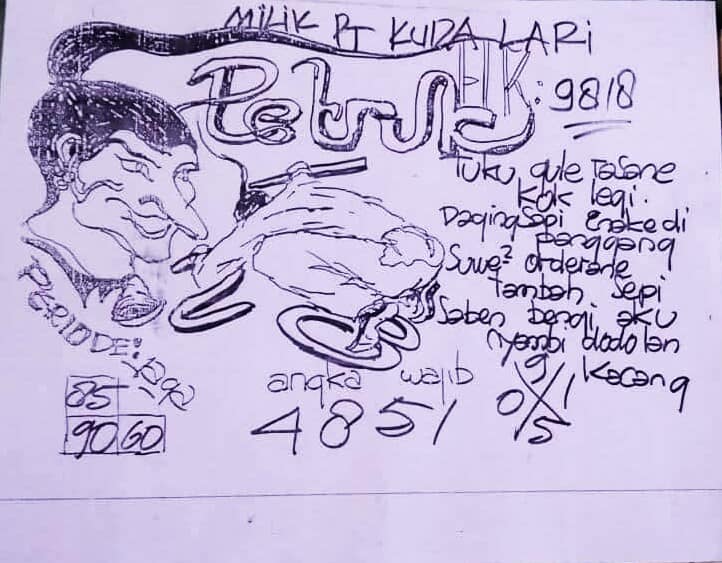 MILIK PT KUDA LARI
Petruk
HK: 9818
Tuku gule rasane
kok legi.
Daging sapi enake di
panggang
Suwe² orderane
tambah sepi
Saben bengi aku
nyambi dodolan
kacang
PERIODE:
85
90 60
angka wajib
4851
9
0 1
5